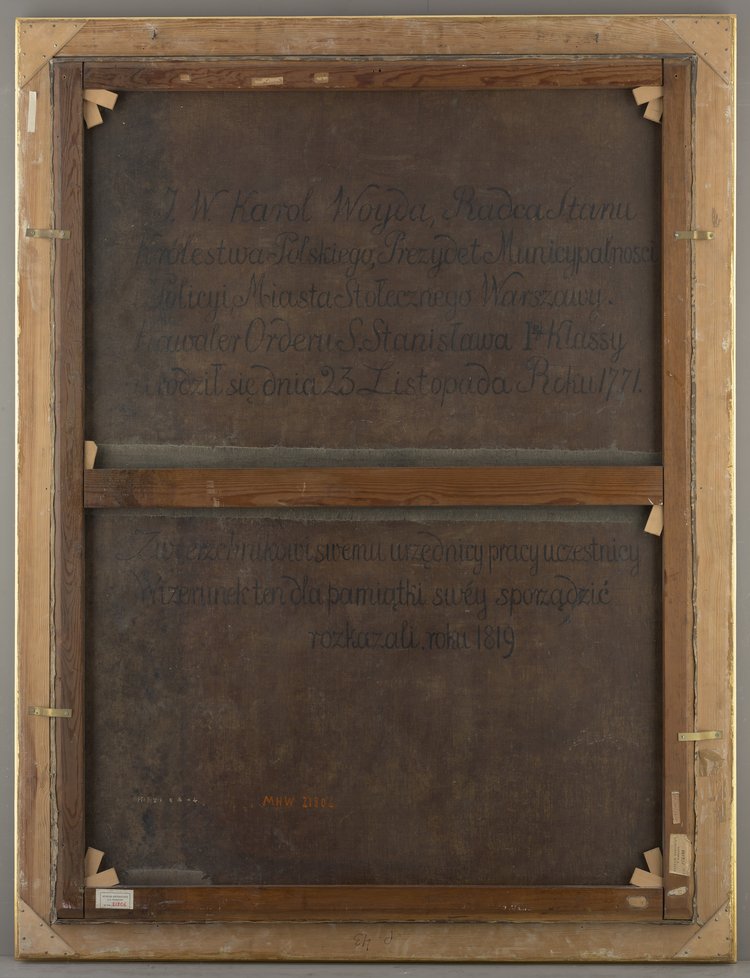 J. W Karol Woyda, Radca Stanu
Królestwa Polskiego, Prezydet Municypalnosci
Policyi Miasta Stołecznego Warszawy.
Kawaler Orderu S. Stanisława I Klassy
urodził się dnia 23 Listopada Roku 1771.
Zwierzchnikowi swemu urzędnicy pracy uczestnicy
Wizerunek ten dla pamiątki swéy sporządzić
rozkazali. roku 1819
MNW 21806
21806